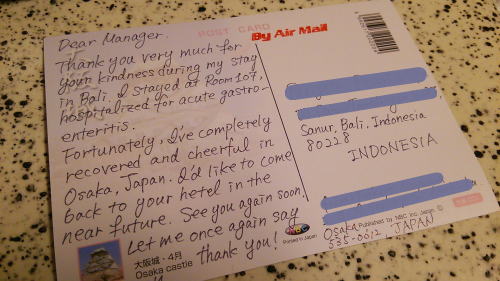 POST CARD
By Air Mail
Dear Manager.
Thank you very much for
your kindness during my stay
in Bali. I stayed at Room 107,
hospitalized for acute gastro-
enteritis.
Fortunately, I've completely
recovered and cheerful in
Osaka, Japan. I'd like to come
back to your hotel in the
near future. See you again soon.
Let me once again say
thank you!
Sanur, Bali, Indonesia
80228
INDONESIA
Osaka
535-0012 JAPAN
Published by NBC Inc. Japan
NBC
Printed in Japan
大阪城・4月
Osaka castle